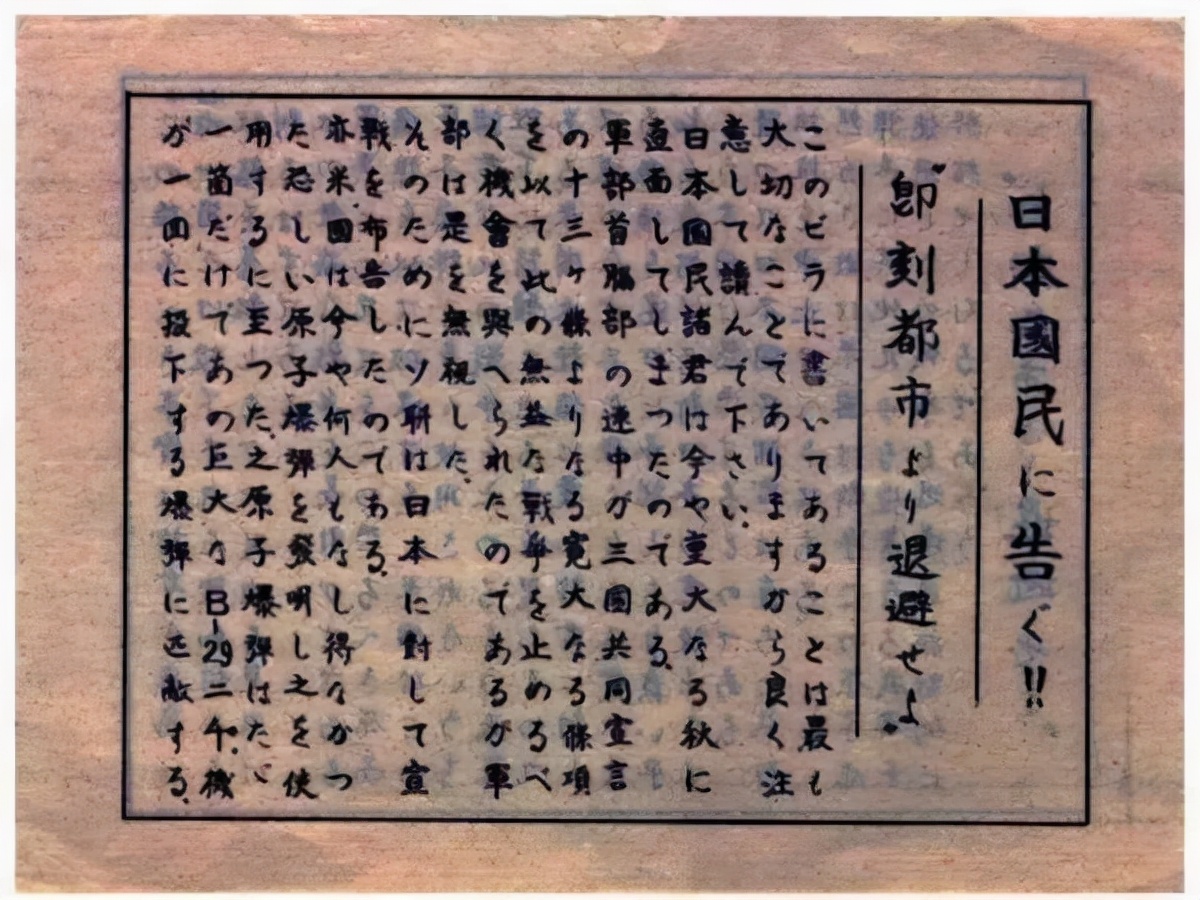 日本國民に告ぐ!!
"即刻都市より退避せよ"
このビラに書いてあることは最も
大切なことでありますから良く注
意して讀んで下さい。
日本國民諸君は今や重大なる秋に
直面してしまつたのである。
軍部首脳部の連中が三國共同宣言
の十三ヶ條よりなる寛大なる條項
を以て此の無益な戦争を止めるべ
く機會を與へられたのであるが軍
部は是を無視した。
そのためにソ聯は日本に對して宣
戰を布告したのである。
亦米國は今や何人もなし得なかつ
た恐しい原子爆弾を發明し之を使
用するに至つた。之原子爆弾はたゞ
一箇だけであの巨大なB-29二千機
が一回に投下する爆弾に匹敵する。